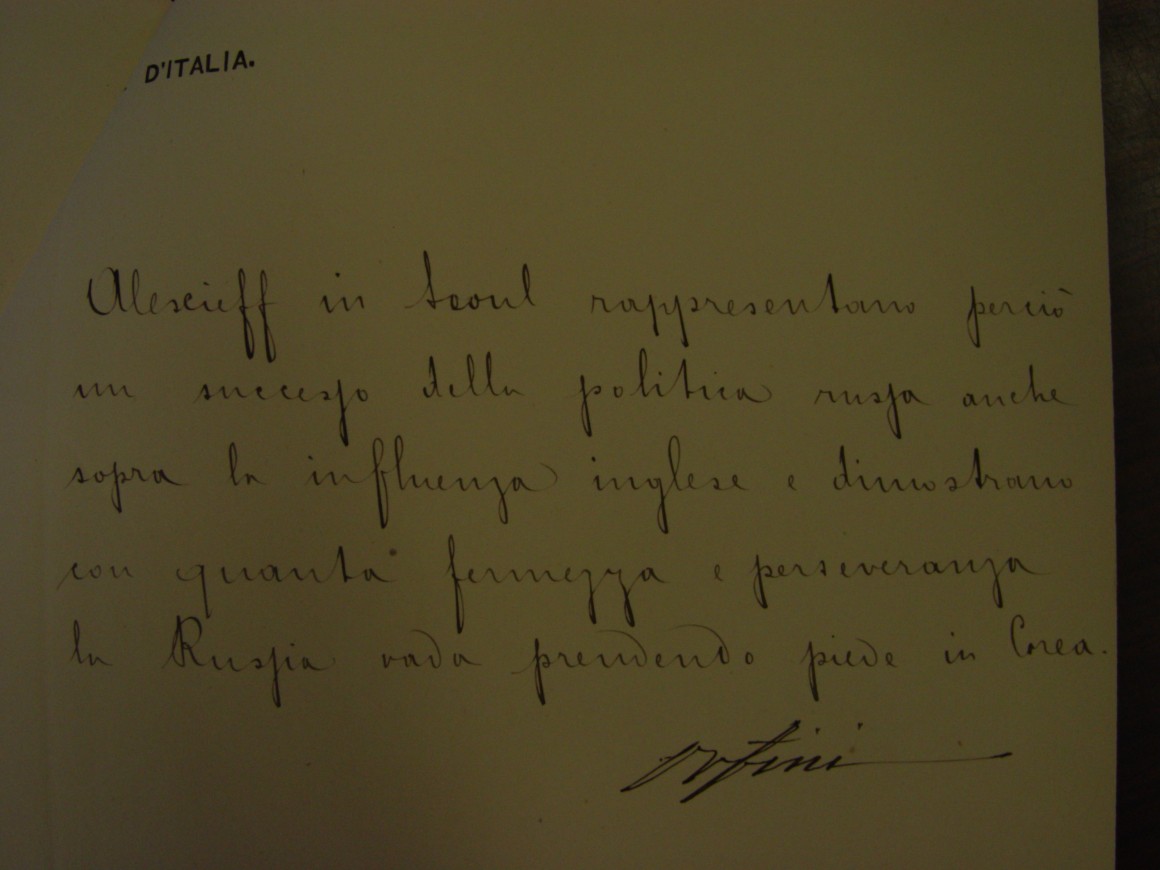 D'ITALIA.
Alexieff in Seoul rappresentano perciò
un successo della politica russa anche
sopra la influenza inglese e dimostrano
con quanta fermezza e perseveranza
la Russia vada prendendo piede in Corea.